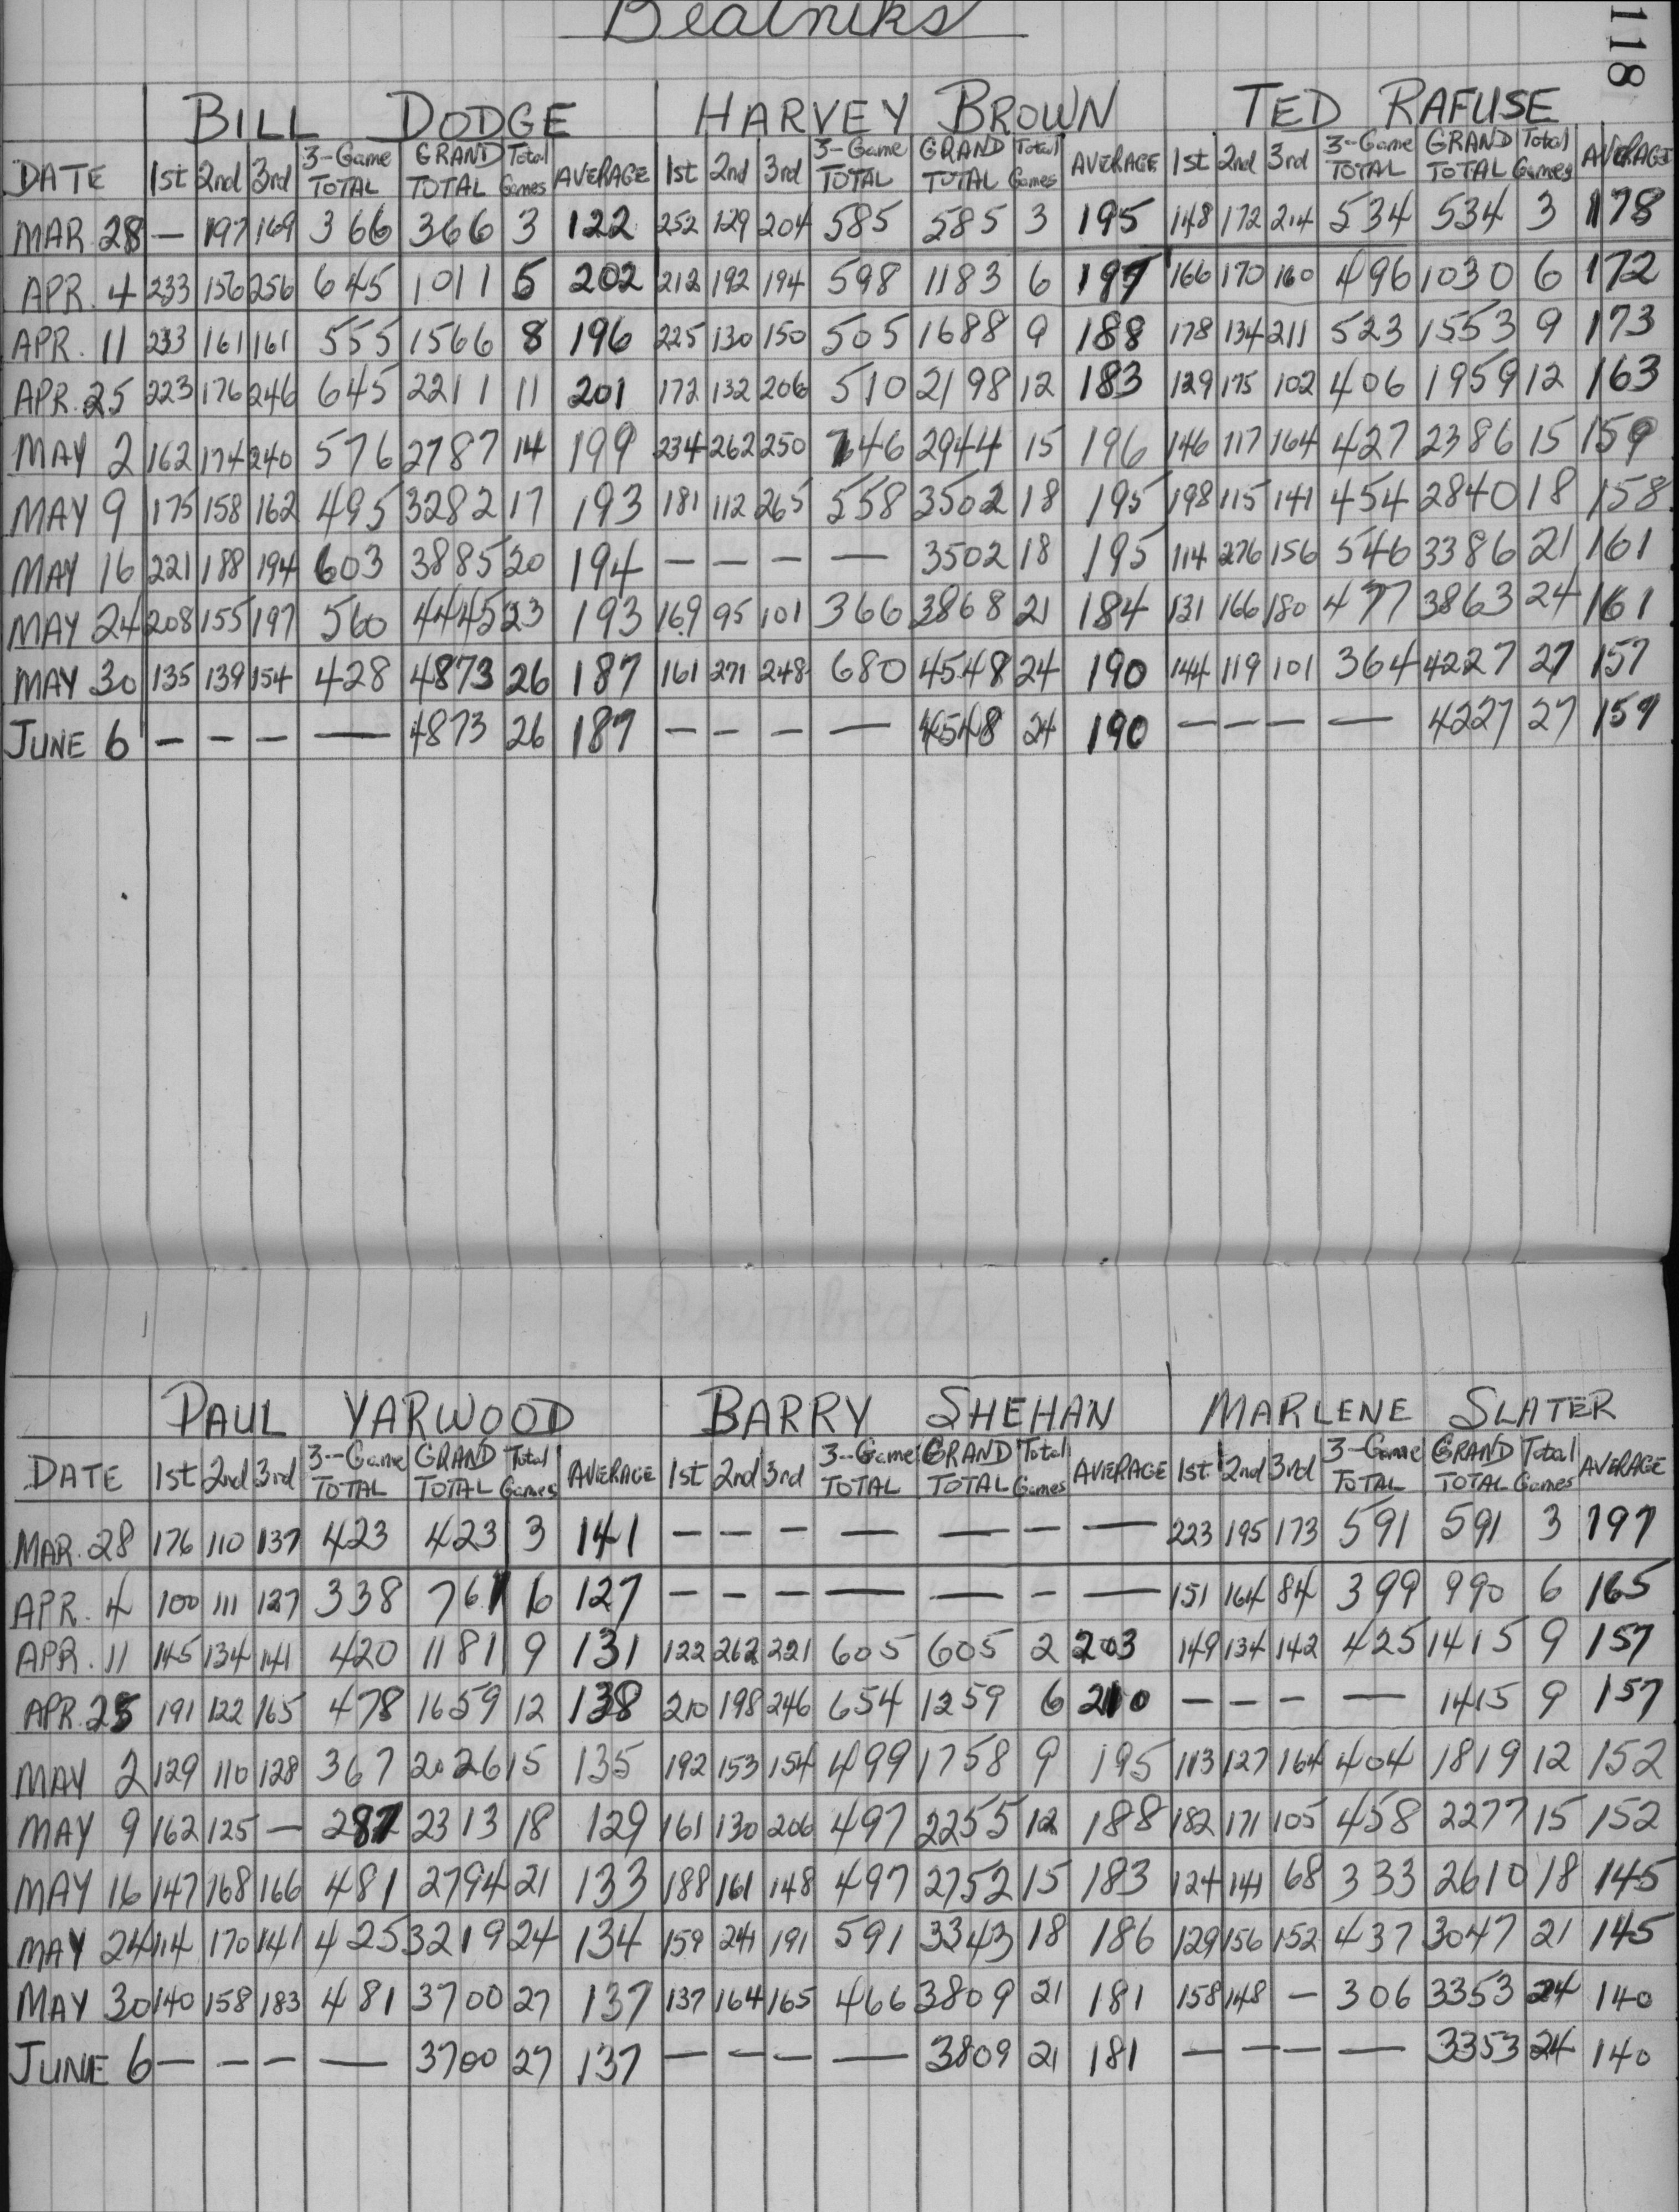 Beatniks
118
BILL DODGE HARVEY BROWN TED RAFUSE
DATE 1st 2nd 3rd 3-Game TOTAL GRAND TOTAL Total Games AVERAGE 1st 2nd 3rd 3-Game TOTAL GRAND TOTAL Total Games AVERAGE 1st 2nd 3rd 3-Game TOTAL GRAND TOTAL Total Games AVERAGE
MAR. 28 — 197 169 366 366 3 122 252 129 204 585 585 3 195 148 172 214 534 534 3 178
APR. 4 233 156 256 645 1011 5 202 212 192 194 598 1183 6 197 166 170 160 496 1030 6 172
APR. 11 233 161 161 555 1566 8 196 225 130 150 505 1688 9 188 178 134 211 523 1553 9 173
APR. 25 223 176 246 645 2211 11 201 172 132 206 510 2198 12 183 129 175 102 406 1959 12 163
MAY 2 162 174 240 576 2787 14 199 234 262 250 746 2944 15 196 146 117 164 427 2386 15 159
MAY 9 175 158 162 495 3282 17 193 181 112 265 558 3502 18 195 198 115 141 454 2840 18 158
MAY 16 221 188 194 603 3885 20 194 — — — — 3502 18 195 114 276 156 546 3386 21 161
MAY 24 208 155 197 560 4445 23 193 169 95 101 366 3868 21 184 131 166 180 477 3863 24 161
MAY 30 135 139 154 428 4873 26 187 161 271 248 680 4548 24 190 144 119 101 364 4227 27 157
JUNE 6 — — — — 4873 26 187 — — — — 4548 24 190 — — — — 4227 27 157
PAUL YARWOOD BARRY SHEHAN MARLENE SLATER
DATE 1st 2nd 3rd 3-Game TOTAL GRAND TOTAL Total Games AVERAGE 1st 2nd 3rd 3-Game TOTAL GRAND TOTAL Total Games AVERAGE 1st 2nd 3rd 3-Game TOTAL GRAND TOTAL Total Games AVERAGE
MAR. 28 176 110 137 423 423 3 141 — — — — — — — 223 195 173 591 591 3 197
APR. 4 100 111 127 338 761 6 127 — — — — — — — 151 164 84 399 990 6 165
APR. 11 145 134 141 420 1181 9 131 122 262 221 605 605 2 203 149 134 142 425 1415 9 157
APR. 25 191 122 165 478 1659 12 138 210 198 246 654 1259 6 210 — — — — 1415 9 157
MAY 2 129 110 128 367 2026 15 135 192 153 154 499 1758 9 195 113 127 164 404 1819 12 152
MAY 9 162 125 — 287 2313 18 129 161 130 206 497 2255 12 188 182 171 105 458 2277 15 152
MAY 16 147 168 166 481 2794 21 133 188 161 148 497 2752 15 183 124 141 68 333 2610 18 145
MAY 24 114 170 141 425 3219 24 134 159 241 191 591 3343 18 186 129 156 152 437 3047 21 145
MAY 30 140 158 183 481 3700 27 137 137 164 165 466 3809 21 181 158 148 — 306 3353 24 140
JUNE 6 — — — — 3700 27 137 — — — — 3809 21 181 — — — — 3353 24 140